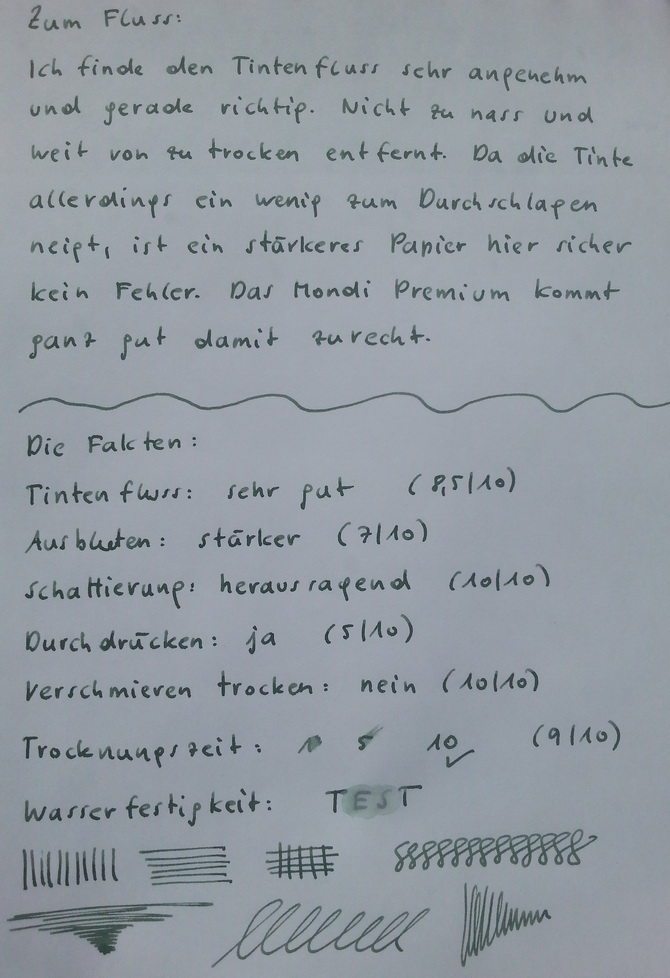 Zum Fluss:
Ich finde den Tintenfluss sehr angenehm
und gerade richtig. Nicht zu nass und
weit von zu trocken entfernt. Da die Tinte
allerdings ein wenig zum Durchschlagen
neigt, ist ein stärkeres Papier hier sicher
kein Fehler. Das Mondi Premium kommt
ganz gut damit zurecht.
Die Fakten:
Tintenfluss: sehr gut (8,5/10)
Ausbluten: stärker (7/10)
Schattierung: herausragend (10/10)
Durchdrücken: ja (5/10)
Verschmieren trocken: nein (10/10)
Trocknungszeit: 1 5 10 ✓ (9/10)
Wasserfestigkeit: TEST